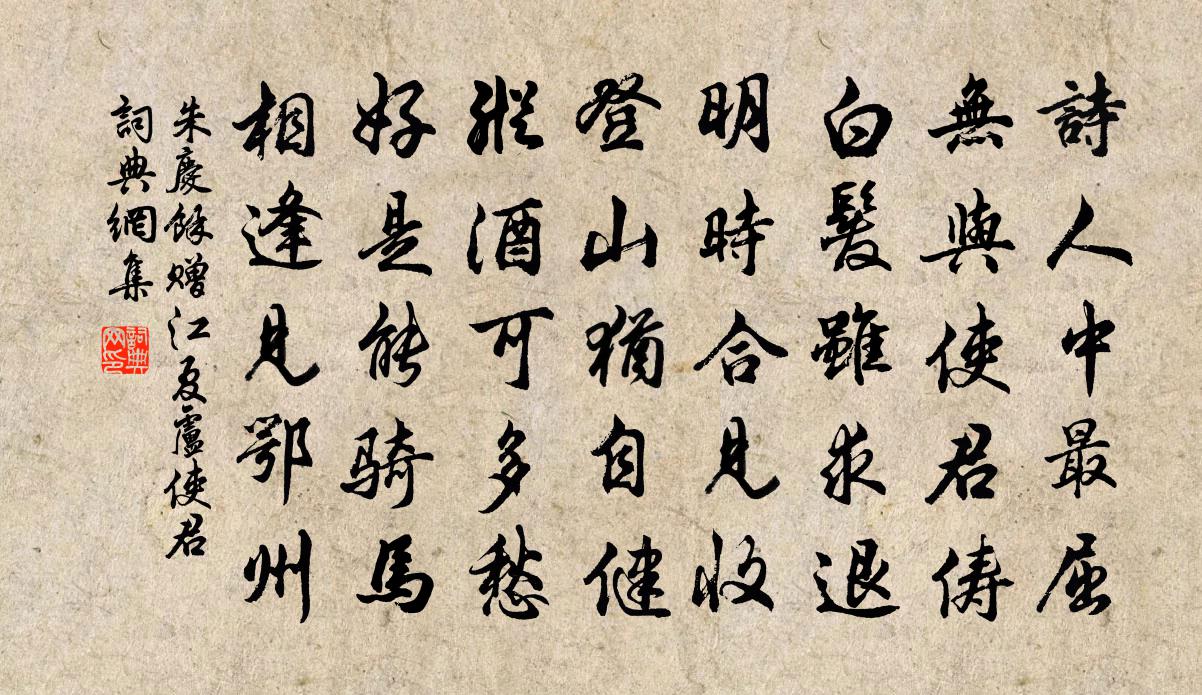 詩人中最屈
無與使君儔
白髮雖求退
明時合見收
登山猶自健
縱酒可多愁
好是能騎馬
相逢見鄂州
朱慶餘贈江夏盧使君
詞典網集
詞典
网印